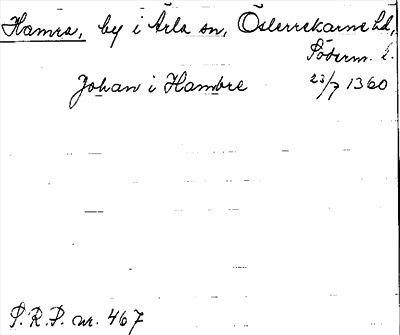 Hamra, by i Ärla sn, Österrekarne hd,
Söderm. l.
Johan i Hambre 23/7 1360
S.R.P. nr. 467